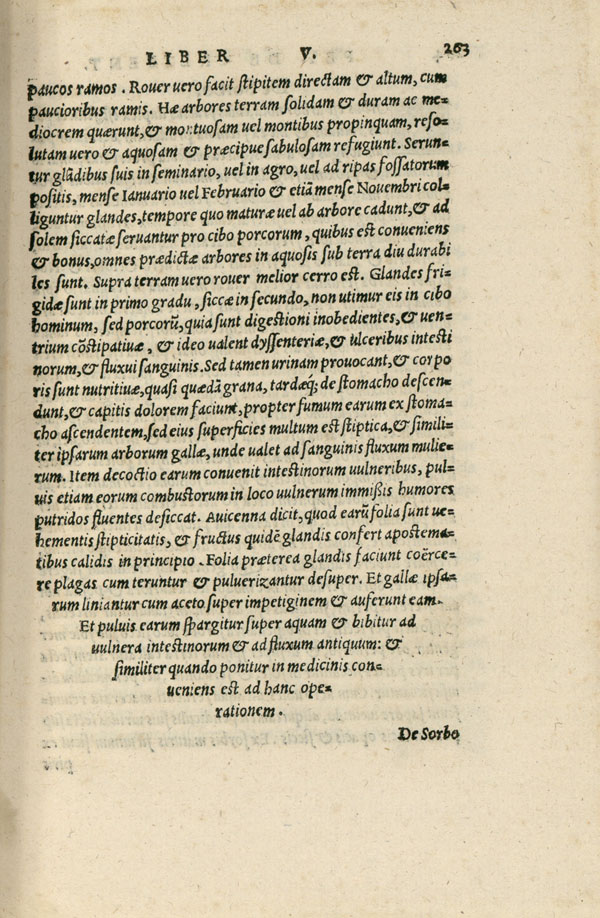 LIBER V. 263
paucos ramos. Rouer uero facit stipitem directam & altum, cum
paucioribus ramis. Hæ arbores terram solidam & duram ac me-
diocrem quærunt, & montuosam uel montibus propinquam, reso-
lutam uero & aquosam & præcipue sabulosam refugiunt. Serun-
tur glādibus suis in seminario, uel in agro, uel ad ripas fossatorum
positis, mense Ianuario uel Februario & etiā mense Nouembri col-
liguntur glandes, tempore quo maturæ uel ab arbore cadunt, & ad
solem siccatæ seruantur pro cibo porcorum, quibus est conueniens
& bonus, omnes prædictæ arbores in aquosis sub terra diu durabi
les sunt. Supra terram uero rouer melior cerro est. Glandes fri-
gidæ sunt in primo gradu, siccæ in secundo, non utimur eis in cibo
hominum, sed porcorū, quia sunt digestioni inobedientes, & uen-
trium cōstipatiuæ, & ideo ualent dyssenteriæ, & ulceribus intesti
norum, & fluxui sanguinis. Sed tamen urinam prouocant, & corpo
ris sunt nutritiuæ, quasi quædā grana, tardæq; de stomacho descen-
dunt, & capitis dolorem faciunt, propter fumum earum ex stoma-
cho ascendentem, sed eius superficies multum est stiptica, & simili-
ter ipsarum arborum gallæ, unde ualet ad sanguinis fluxum mulie-
rum. Item decoctio earum conuenit intestinorum uulneribus, pul-
uis etiam eorum combustorum in loco uulnerum immißis humores
putridos fluentes desiccat. Auicenna dicit, quod earū folia sunt ue-
hementis stipticitatis, & fructus quidē glandis confert apostema-
tibus calidis in principio. Folia præterea glandis faciunt coërce-
re plagas cum teruntur & puluerizantur desuper. Et gallæ ipsa-
rum liniantur cum aceto super impetiginem & auferunt eam.
Et puluis earum spargitur super aquam & bibitur ad
uulnera intestinorum & ad fluxum antiquum: &
similiter quando ponitur in medicinis con-
ueniens est ad hanc ope-
rationem.
De Sorbo